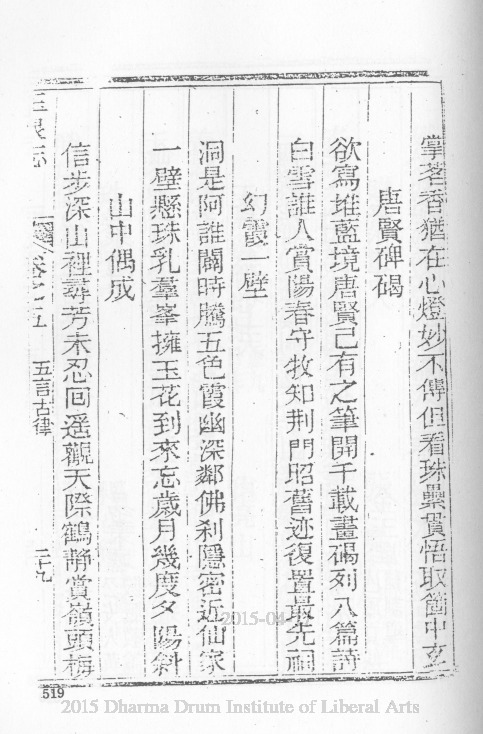 掌茗香猶在心燈妙不傳但看珠纍貫悟取箇中玄
唐賢碑碣
欲寫堆藍境唐賢已有之筆開千載畫碣列八篇詩
白雪誰人賞陽春守牧知荆門昭舊迹復置最先祠
幻霞一壁
洞是阿誰闢時騰五色霞幽深鄰佛刹隱密近仙家
一壁懸珠乳羣峯擁玉花到來忘歲月幾度夕陽斜
山中偶成
信步深山裡尋芳未忍回遥觀天際鶴靜賞嶺頭梅
玉泉志 卷之五 五言古律
519
2015 Dharma Drum Institute of Liberal Arts